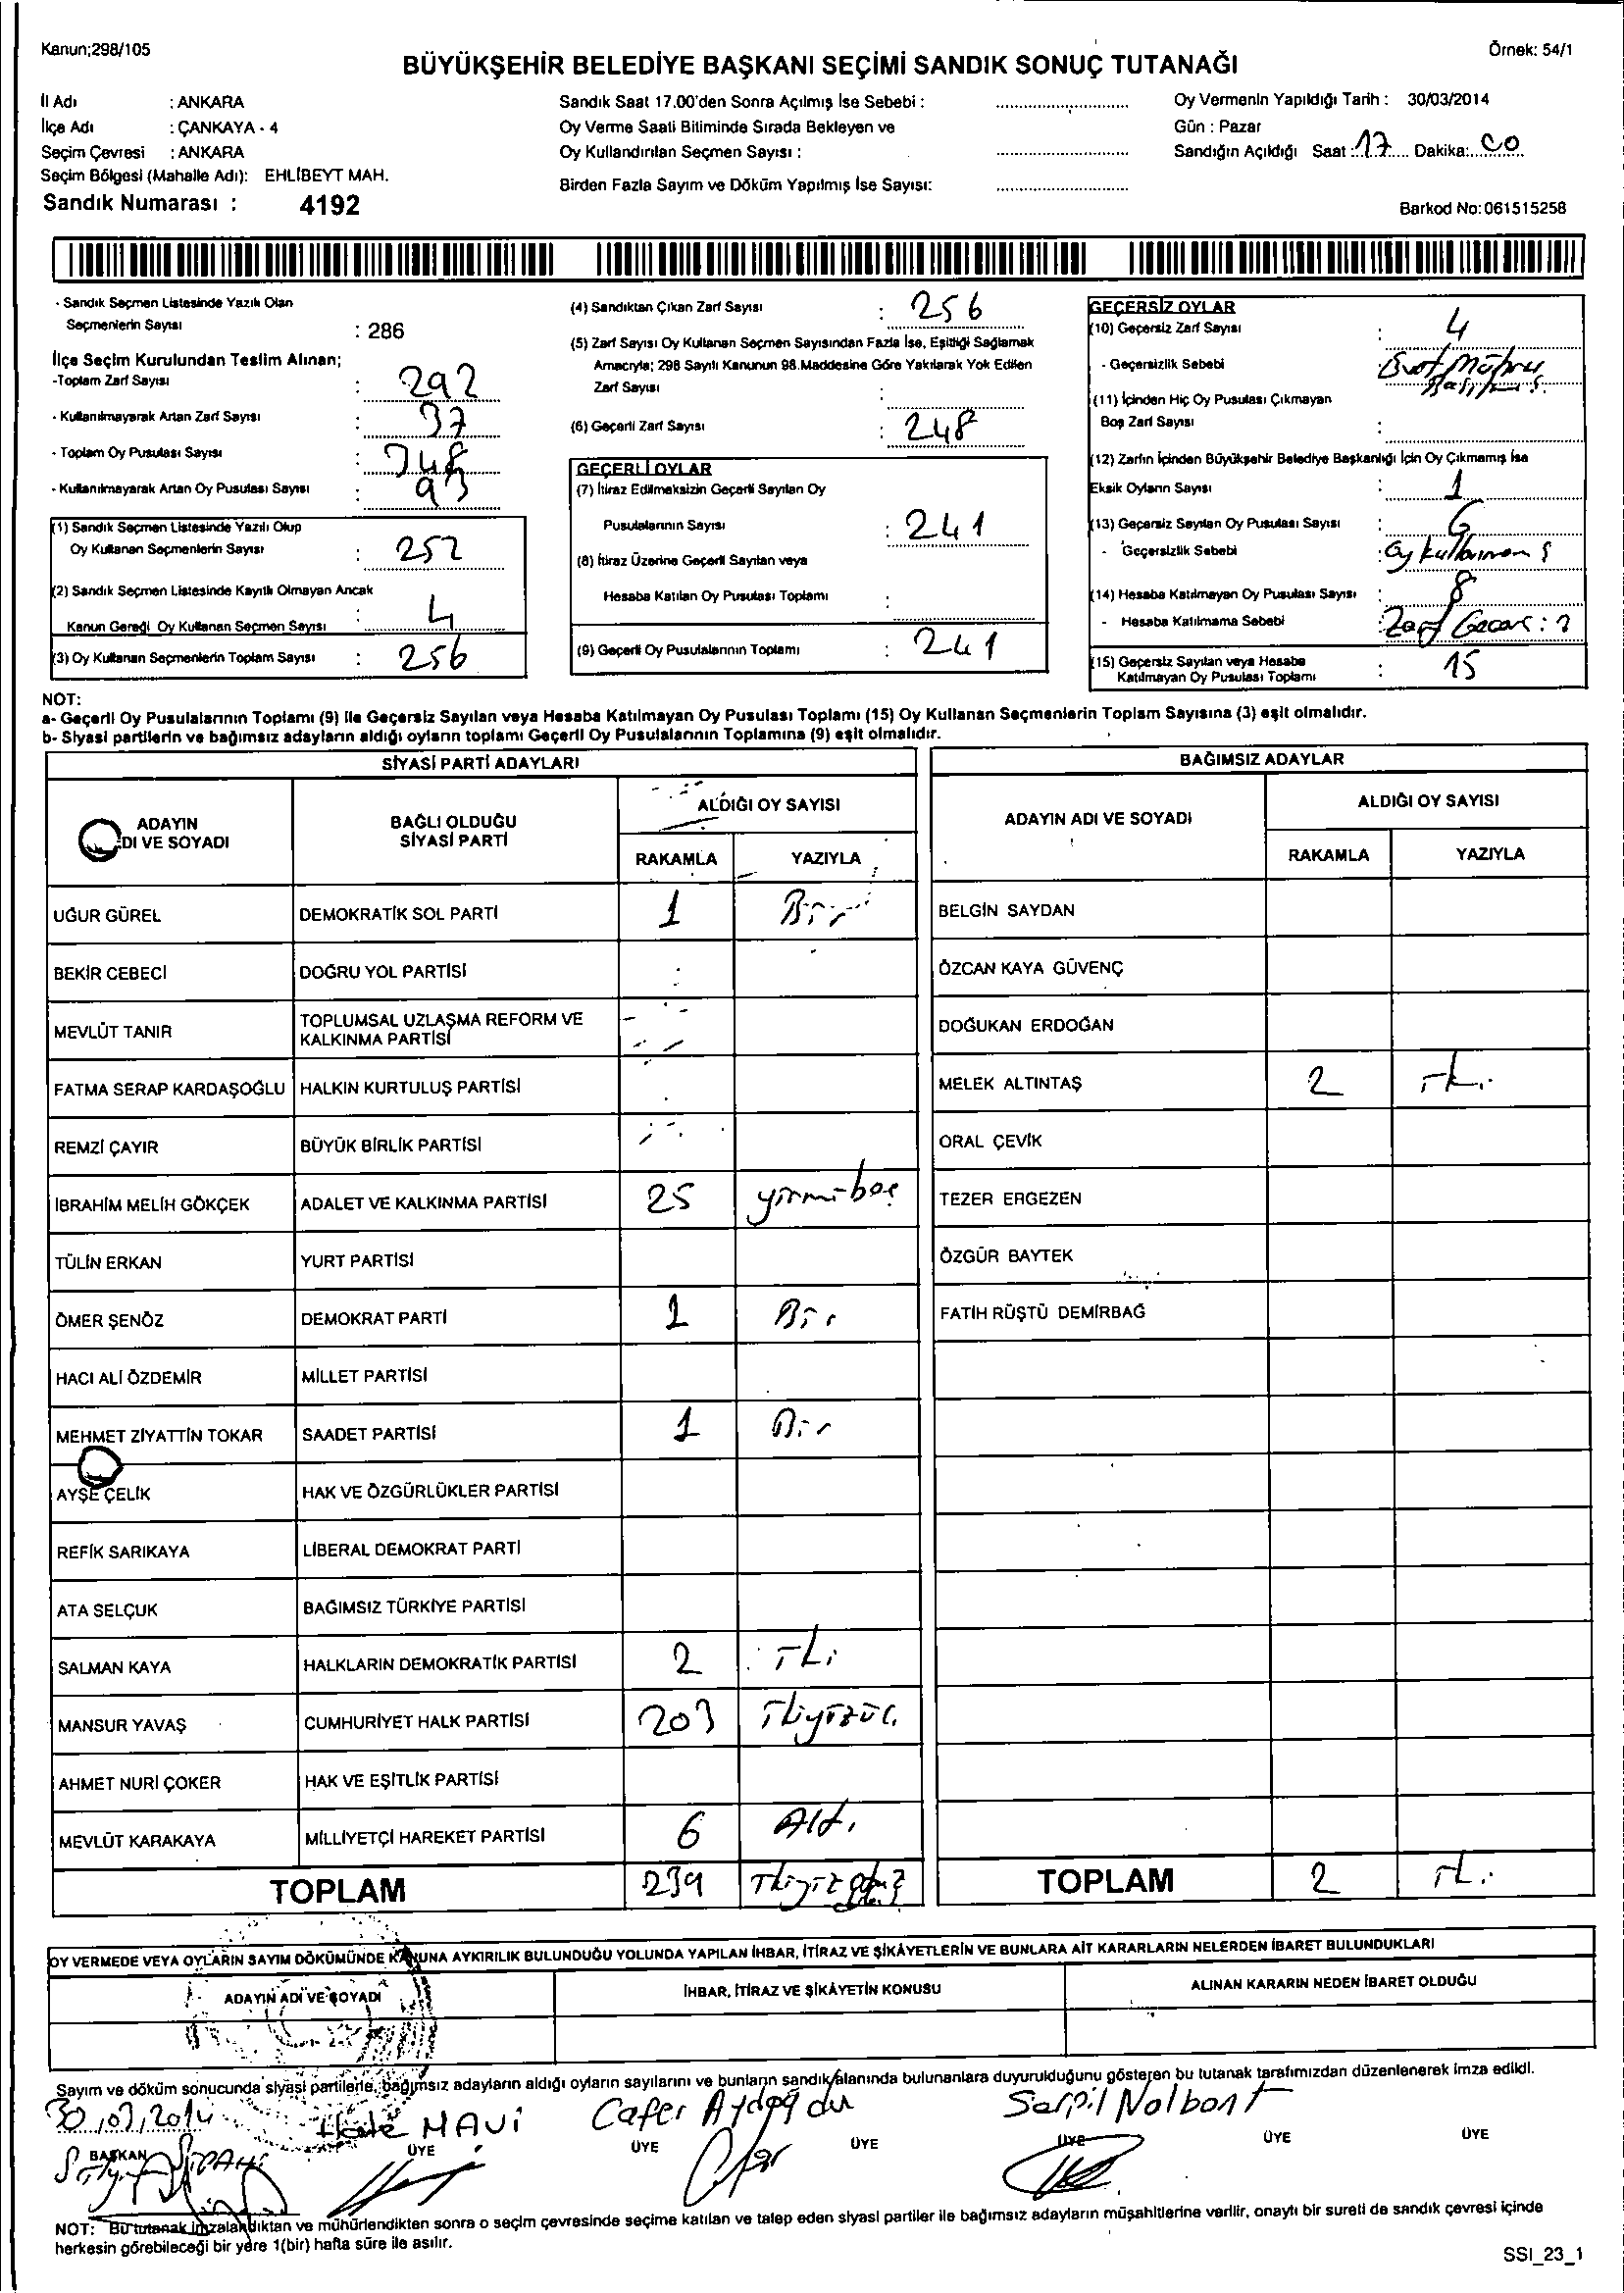 Kanun;298/105
Örnek: 54/1
BÜYÜKŞEHİR BELEDİYE BAŞKANI SEÇİMİ SANDIK SONUÇ TUTANAĞI
İl Adı : ANKARA
İlçe Adı : ÇANKAYA - 4
Seçim Çevresi : ANKARA
Seçim Bölgesi (Mahalle Adı): EHLİBEYT MAH.
Sandık Numarası : 4192
Sandık Saat 17.00'den Sonra Açılmış İse Sebebi :
Oy Verme Saati Bitiminde Sırada Bekleyen ve
Oy Kullandırılan Seçmen Sayısı :
Birden Fazla Sayım ve Döküm Yapılmış İse Sayısı:
Oy Vermenin Yapıldığı Tarih : 30/03/2014
Gün : Pazar
Sandığın Açıldığı Saat : 17 Dakika: 00
Barkod No:061515258
- Sandık Seçmen Listesinde Yazılı Olan
Seçmenlerin Sayısı : 286
İlçe Seçim Kurulundan Teslim Alınan;
-Toplam Zarf Sayısı : 292
- Kullanılmayarak Artan Zarf Sayısı : 37
- Toplam Oy Pusulası Sayısı : 348
- Kullanılmayarak Artan Oy Pusulası Sayısı : 93
(1) Sandık Seçmen Listesinde Yazılı Olup
Oy Kullanan Seçmenlerin Sayısı : 252
(2) Sandık Seçmen Listesinde Kayıtlı Olmayan Ancak
Kanun Gereği Oy Kullanan Seçmen Sayısı : 4
(3) Oy Kullanan Seçmenlerin Toplam Sayısı : 256
(4) Sandıktan Çıkan Zarf Sayısı : 256
(5) Zarf Sayısı Oy Kullanan Seçmen Sayısından Fazla İse, Eşitliği Sağlamak
Amacıyla; 298 Sayılı Kanunun 98.Maddesine Göre Yakılarak Yok Edilen
Zarf Sayısı :
(6) Geçerli Zarf Sayısı : 248
GEÇERLİ OYLAR
(7) İtiraz Edilmeksizin Geçerli Sayılan Oy
Pusulalarının Sayısı : 241
(8) İtiraz Üzerine Geçerli Sayılan veya
Hesaba Katılan Oy Pusulası Toplamı :
(9) Geçerli Oy Pusulalarının Toplamı : 241
GEÇERSİZ OYLAR
(10) Geçersiz Zarf Sayısı : 4
- Geçersizlik Sebebi
(11) İçinden Hiç Oy Pusulası Çıkmayan
Boş Zarf Sayısı :
(12) Zarfın İçinden Büyükşehir Belediye Başkanlığı İçin Oy Çıkmamış İse
Eksik Oyların Sayısı : 1
(13) Geçersiz Sayılan Oy Pusulası Sayısı : 6
- Geçersizlik Sebebi :
(14) Hesaba Katılmayan Oy Pusulası Sayısı : 8
- Hesaba Katılmama Sebebi : Zarf
(15) Geçersiz Sayılan veya Hesaba
Katılmayan Oy Pusulası Toplamı : 15
NOT:
a- Geçerli Oy Pusulalarının Toplamı (9) ile Geçersiz Sayılan veya Hesaba Katılmayan Oy Pusulası Toplamı (15) Oy Kullanan Seçmenlerin Toplam Sayısına (3) eşit olmalıdır.
b- Siyasi partilerin ve bağımsız adayların aldığı oyların toplamı Geçerli Oy Pusulalarının Toplamına (9) eşit olmalıdır.
SİYASİ PARTİ ADAYLARI
ADAYIN
DI VE SOYADI
BAĞLI OLDUĞU
SİYASİ PARTİ
ALDIĞI OY SAYISI
RAKAMLA YAZIYLA
UĞUR GÜREL DEMOKRATİK SOL PARTİ 1 Bir
BEKİR CEBECİ DOĞRU YOL PARTİSİ
MEVLÜT TANIR TOPLUMSAL UZLAŞMA REFORM VE
KALKINMA PARTİSİ
FATMA SERAP KARDAŞOĞLU HALKIN KURTULUŞ PARTİSİ
REMZİ ÇAYIR BÜYÜK BİRLİK PARTİSİ
İBRAHİM MELİH GÖKÇEK ADALET VE KALKINMA PARTİSİ 25 yirmibeş
TÜLİN ERKAN YURT PARTİSİ
ÖMER ŞENÖZ DEMOKRAT PARTİ 1 Bir
HACI ALİ ÖZDEMİR MİLLET PARTİSİ
MEHMET ZİYATTİN TOKAR SAADET PARTİSİ 1 Bir
AYŞE ÇELİK HAK VE ÖZGÜRLÜKLER PARTİSİ
REFİK SARIKAYA LİBERAL DEMOKRAT PARTİ
ATA SELÇUK BAĞIMSIZ TÜRKİYE PARTİSİ
SALMAN KAYA HALKLARIN DEMOKRATİK PARTİSİ 2 İki
MANSUR YAVAŞ CUMHURİYET HALK PARTİSİ 203 İkiyüzüç
AHMET NURİ ÇOKER HAK VE EŞİTLİK PARTİSİ
MEVLÜT KARAKAYA MİLLİYETÇİ HAREKET PARTİSİ 6 Altı
TOPLAM 239
BAĞIMSIZ ADAYLAR
ADAYIN ADI VE SOYADI
ALDIĞI OY SAYISI
RAKAMLA YAZIYLA
BELGİN SAYDAN
ÖZCAN KAYA GÜVENÇ
DOĞUKAN ERDOĞAN
MELEK ALTINTAŞ 2 İki
ORAL ÇEVİK
TEZER ERGEZEN
ÖZGÜR BAYTEK
FATİH RÜŞTÜ DEMİRBAĞ
TOPLAM 2 İki
OY VERMEDE VEYA OYLARIN SAYIM DÖKÜMÜNDE KANUNA AYKIRILIK BULUNDUĞU YOLUNDA YAPILAN İHBAR, İTİRAZ VE ŞİKÂYETLERİN VE BUNLARA AİT KARARLARIN NELERDEN İBARET BULUNDUKLARI
ADAYIN ADI VE SOYADI
İHBAR, İTİRAZ VE ŞİKÂYETİN KONUSU
ALINAN KARARIN NEDEN İBARET OLDUĞU
Sayım ve döküm sonucunda siyasi partilerle, bağımsız adayların aldığı oyların sayılarını ve bunların sandık alanında bulunanlara duyurulduğunu gösteren bu tutanak tarafımızdan düzenlenerek imza edildi.
30/03/2014 MAVİ Cafer Aydoğdu Serpil Nalbant
BAŞKAN ÜYE ÜYE ÜYE ÜYE ÜYE ÜYE
NOT: Bu tutanak imzalandıktan ve mühürlendikten sonra o seçim çevresinde seçime katılan ve talep eden siyasi partiler ile bağımsız adayların müşahitlerine verilir, onaylı bir sureti de sandık çevresi içinde
herkesin görebileceği bir yere 1(bir) hafta süre ile asılır.
SSI_23_1